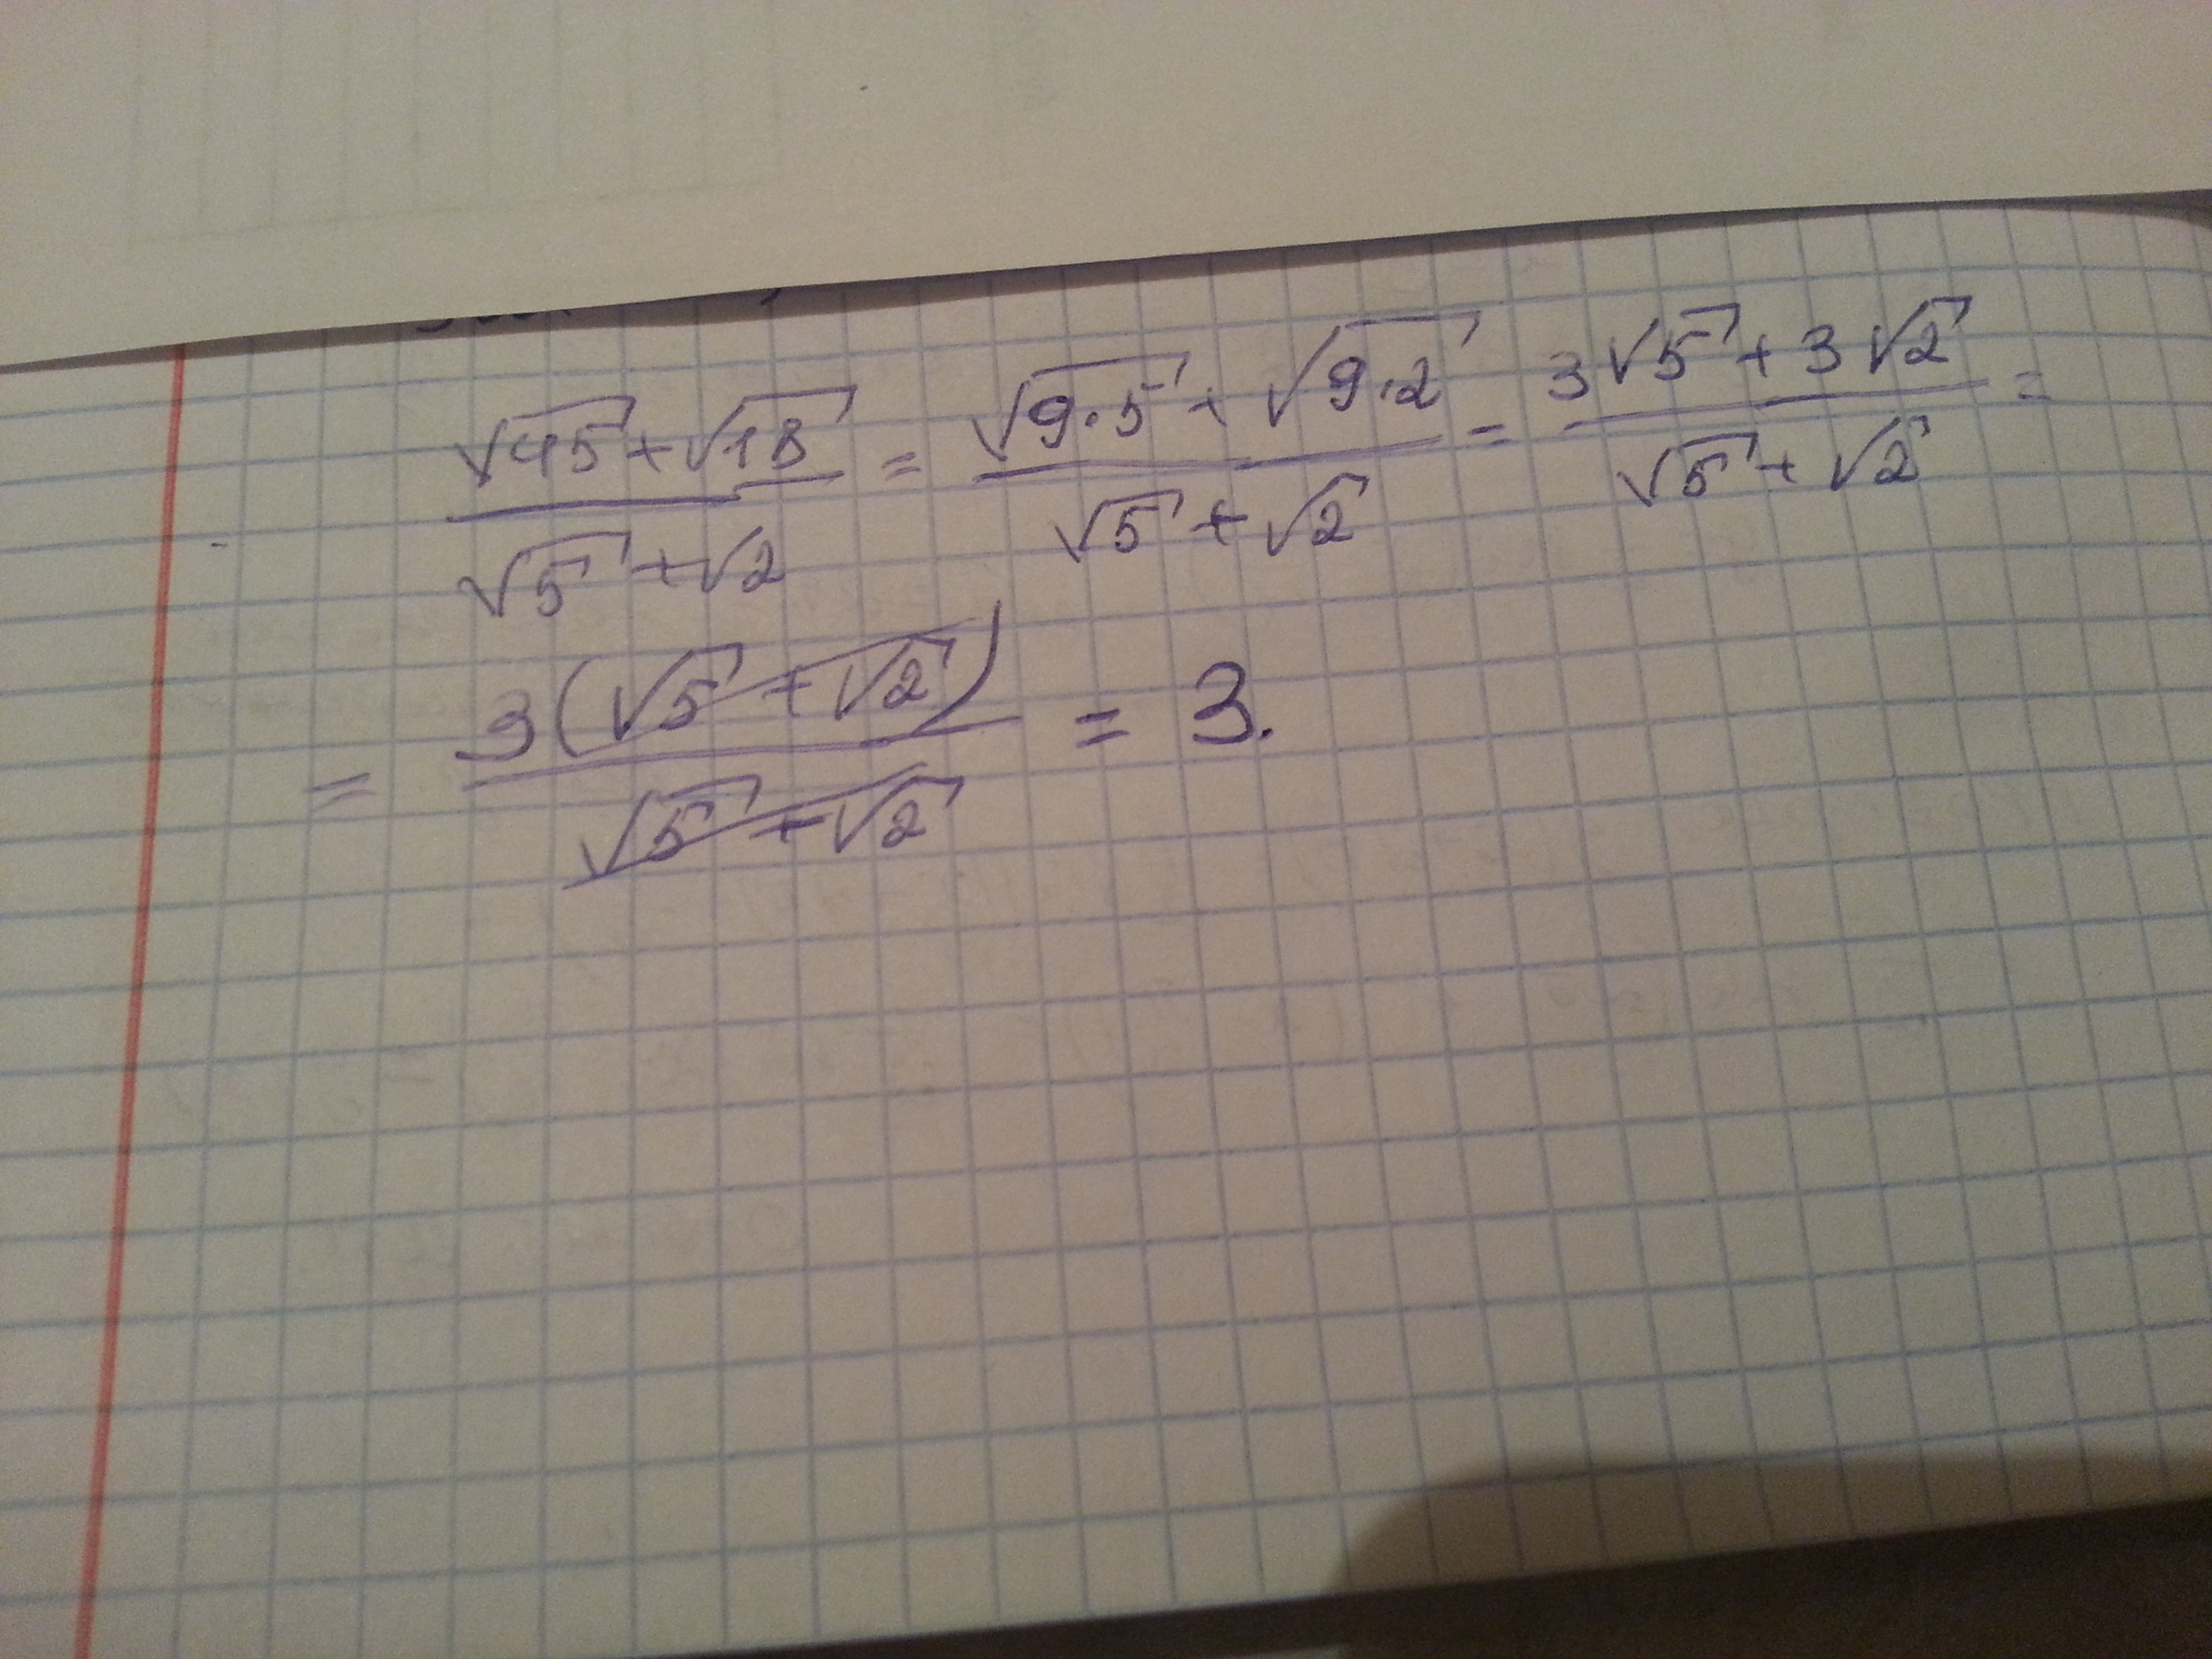 (√45+√18)/(√5+√2) = (√9·5+√9·2)/(√5+√2) = (3√5+3√2)/(√5+√2) =
= 3(√5+√2)/(√5+√2) = 3.